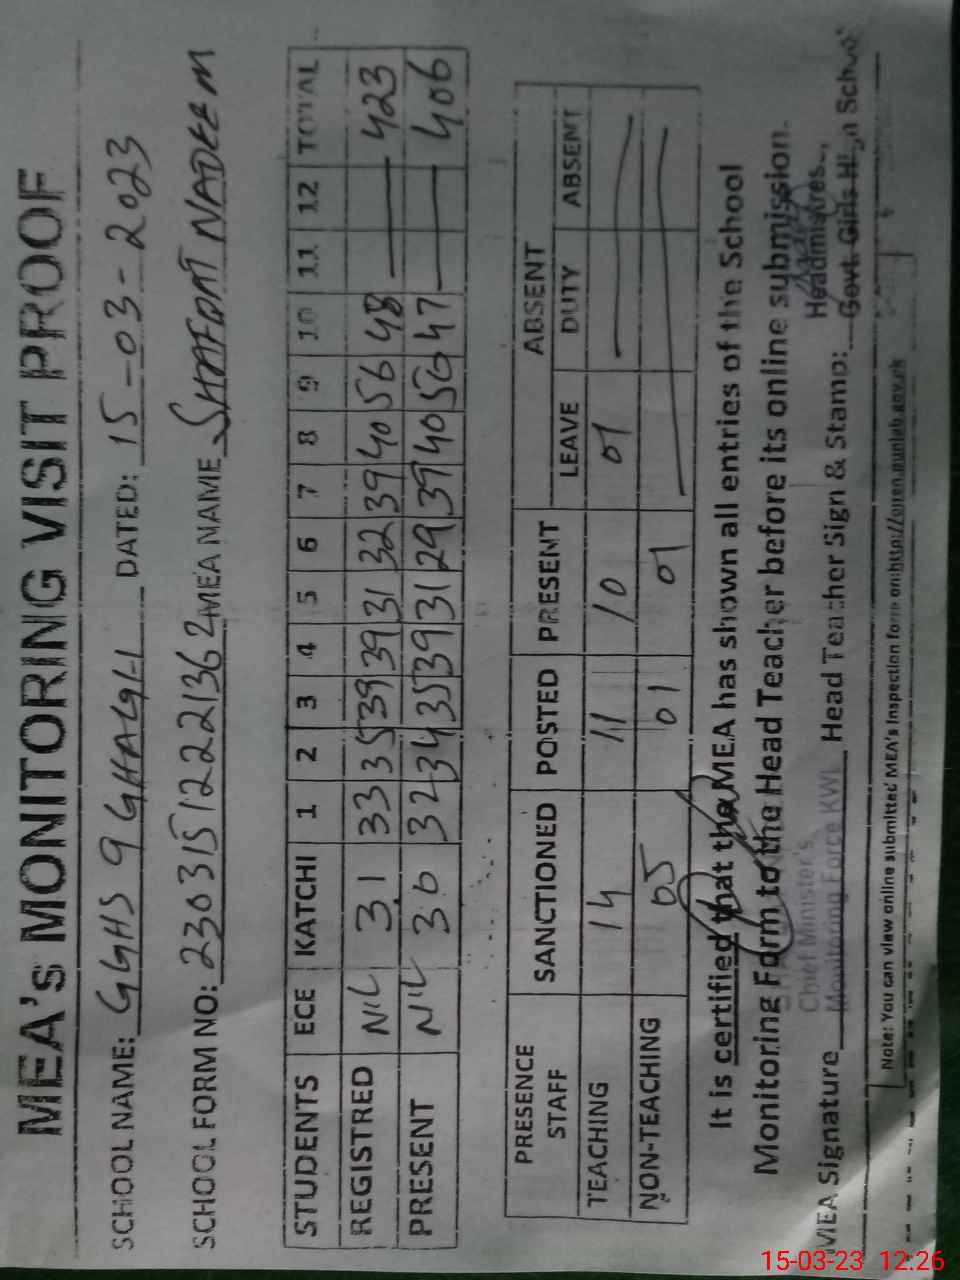 MEA's MONITORING VISIT PROOF
SCHOOL NAME: GGHS 9 GHAGH DATED: 15-03-2023
SCHOOL FORM NO: 23031512221362 MEA NAME SHAFQAT NADEEM
STUDENTS ECE KATCHI 1 2 3 4 5 6 7 8 9 10 11 12 TOTAL
REGISTRED NIL 31 33 35 39 39 31 32 39 40 56 48 — 423
PRESENT NIL 30 32 34 35 39 31 29 39 40 56 47 — 406
PRESENCE STAFF SANCTIONED POSTED PRESENT ABSENT
LEAVE DUTY ABSENT
TEACHING 14 11 10 01 —
NON-TEACHING 05 01 01 —
It is certified that the MEA has shown all entries of the School
Monitoring Form to the Head Teacher before its online submission.
Chief Minister's
Monitoring Force KWL
Headmistress
Govt. Girls High School
MEA Signature Head Teacher Sign & Stamp:
Note: You can view online submitted MEA's Inspection form on:http://open.punjab.gov.pk
15-03-23 12:26